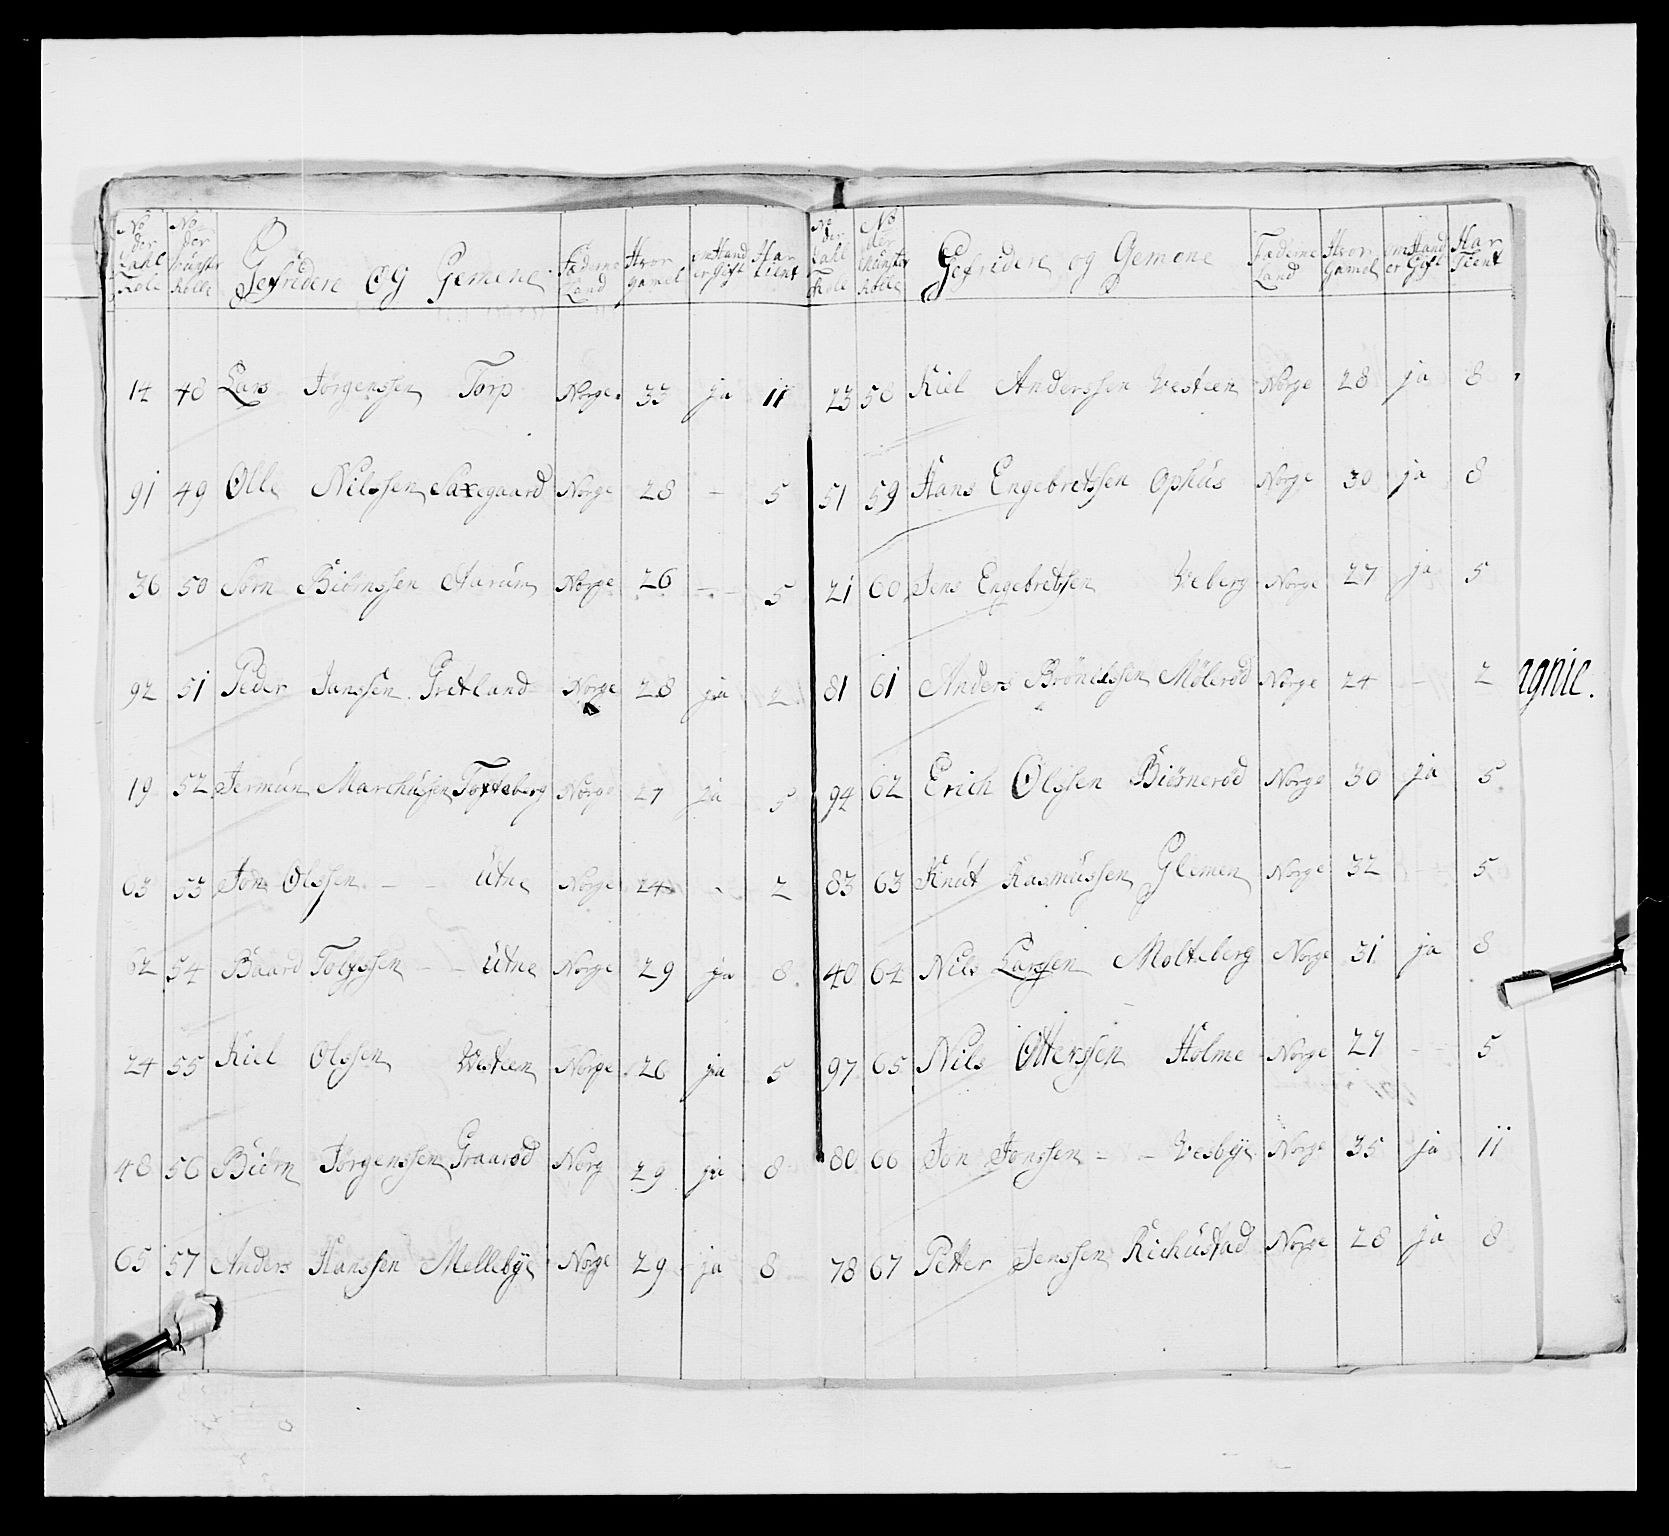 No der Tahl Role | No der Munster Rolle | Gefridere Og Gemene | Fæderne Land | Hvor gamel | om Hand er Gift | Har tient
14 48 Lars Jörgenssen Torp Norge 33 ja 11
91 49 Olle Nilssen Saxegaard Norge 28 - 5
36 50 Sörn Biörnssen Aarum Norge 26 - 5
92 51 Peder Janssen Gretland Norge 28 ja 2
19 52 Jermun Marchussen Tofteberg Norge 27 ja 5
63 53 Jon Olssen - - Utne Norge 24 - 2
62 54 Baard Tolfssen - - Utne Norge 29 ja 8
24 55 Kiel Olssen Vesteen Norge 26 ja 5
48 56 Biörn Jörgenssen Graaröd Norg 29 ja 8
65 57 Anders Hanssen Mellebÿe Norge 29 ja 8
No der Tahl Role | No der Munster Rolle | Gefridere og Gemene | Fæderne Land | Hvor Gamel | om Hand er Gift | Har Tient
23 58 Kiel Anderssen Vesteen Norge 28 ja 8
51 59 Hans Engebretssen Ophus Norge 30 ja 8
21 60 Jens Engebretssen Veberg Norge 27 ja 5
81 61 Anders Brönilssen Möleröd Norge 24 - 2
94 62 Erich Olssen Biörneröd Norge 30 ja 5
83 63 Knut Rasmussen Glemen Norge 32 - 5
40 64 Nils Larssen Molteberg Norge 31 ja 8
97 65 Nils Otterssen Holme Norge 27 - 5
80 66 Jon Jonssen - - Vesbÿe Norge 35 ja 11
78 67 Petter Jenssen Kichustad Norge 28 ja 8
agnie.